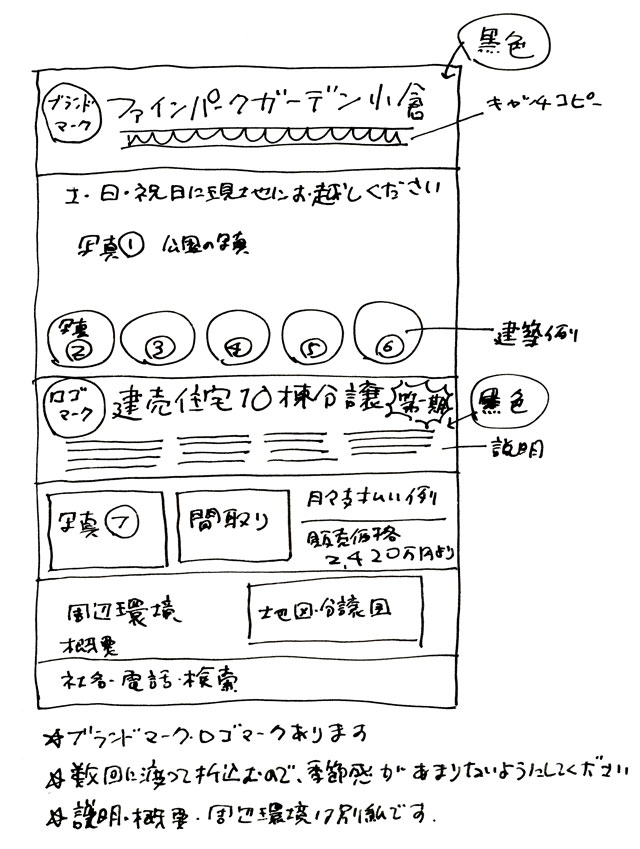 黒色
ブランド
マーク
ファインパークガーデン小倉
キャッチコピー
土・日・祝日に現地にお越しください
写真① 公園の写真
写真
② ③ ④ ⑤ ⑥
建築例
ロゴ
マーク
建売住宅10棟分譲
第一期
黒色
説明
写真⑦
間取り
月々支払い例
販売価格
2,420万円より
周辺環境
概要
地図・分譲図
社名・電話・検索
☆ブランドマーク・ロゴマークあります
☆数回に渡って折込むので、季節感があまりないようにしてください
☆説明・概要・周辺環境は別紙です.